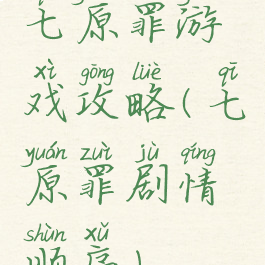 七原罪游
xì gōng lüè qī
戏攻略(七
yuán zuì jù qíng
原罪剧情
shùn xǔ
顺序)